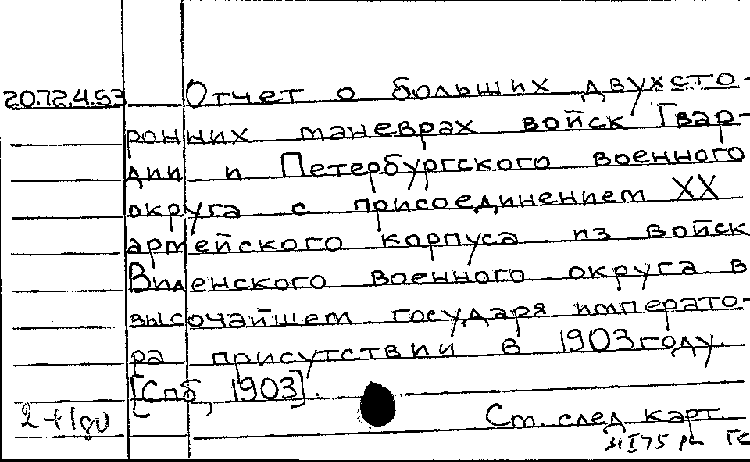 20.72.4.53 Отчет о больших двухсто-
ронних маневрах войск Гвар-
дии и Петербургского военного
округа с присоединением XX
армейского корпуса из войск
Виленского военного округа в
высочайшем государя императо-
ра присутствии в 1903 году.
[Спб, 1903].
Ст. след карт